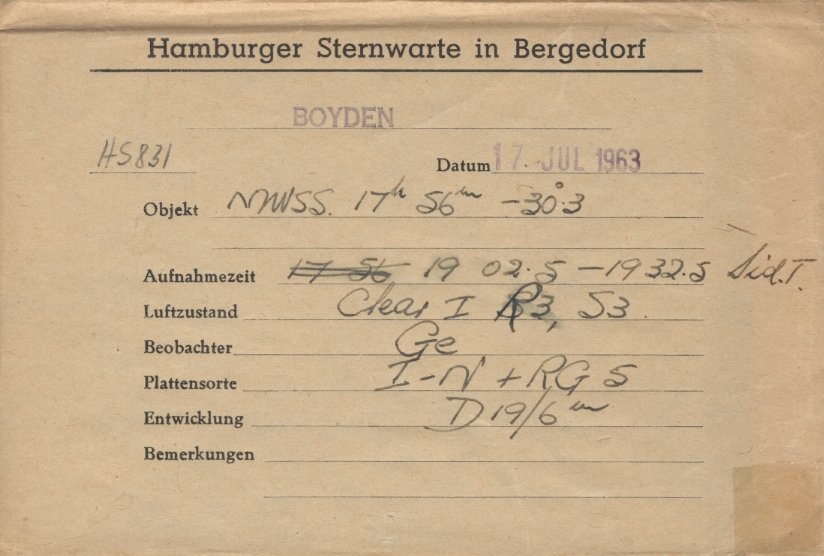 Hamburger Sternwarte in Bergedorf
BOYDEN
HS831
Datum 17. JUL 1963
Objekt NMWSS. 17h 56m -30°.3
Aufnahmezeit 17 56 19 02.5 - 19 32.5 Sid.T.
Luftzustand Clear I R3, S3.
Beobachter Ge
Plattensorte I-N + RG 5
Entwicklung D19/6m
Bemerkungen